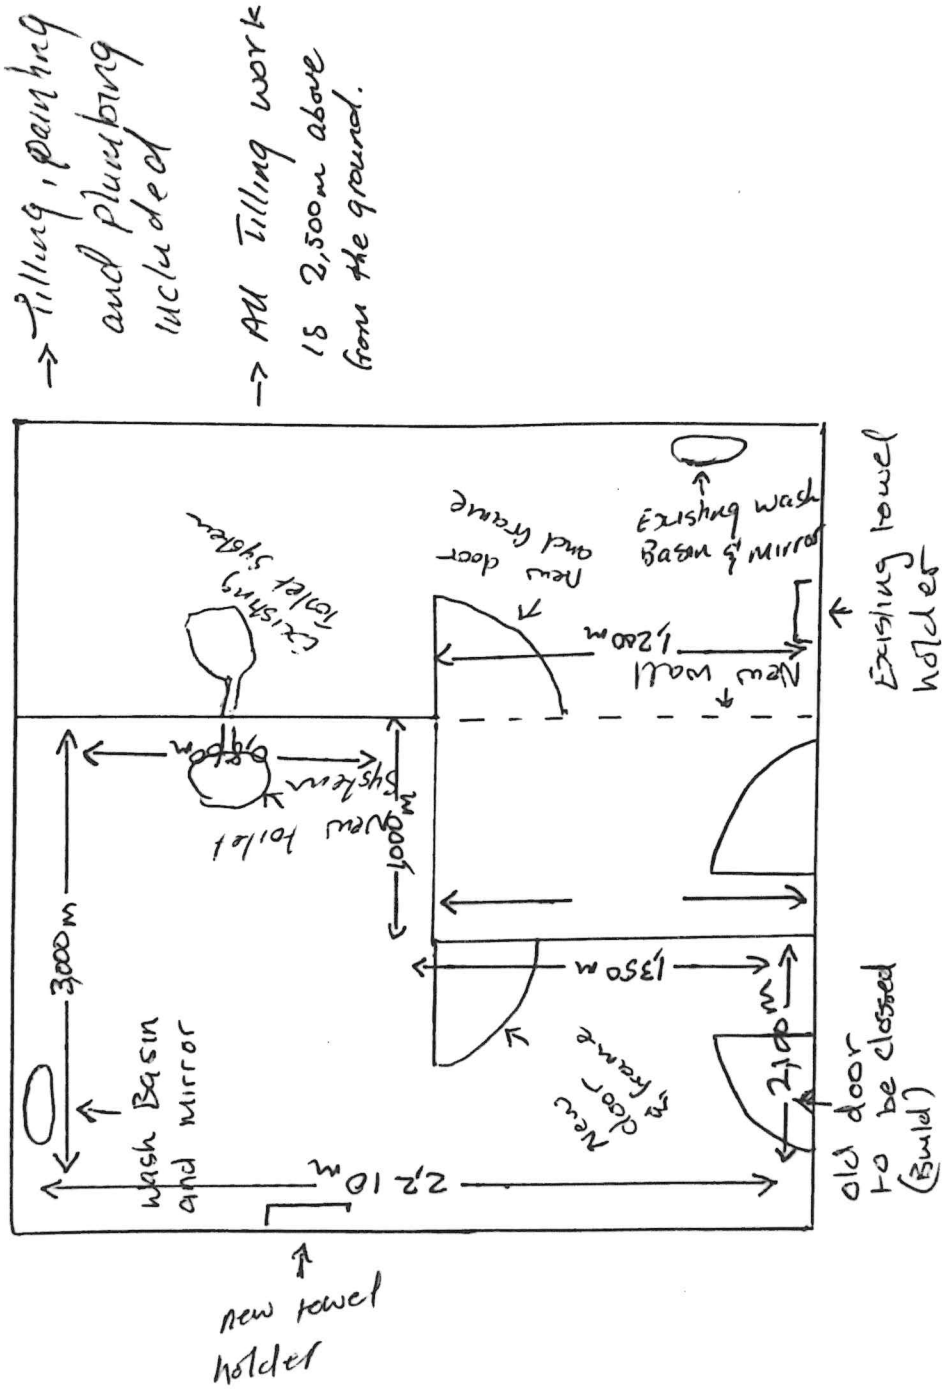 → Tilling, painting
and plumbing
included
→ All Tilling work
is 2,500m above
from the ground.
Existing
Toilet System
New door
and frame
Existing wash
Basin & mirror
1,200m
New wall
Existing towel
holder
0,900m
New toilet
System
1,000m
3,000m
wash Basin
and mirror
1,350m
2,100m
New
door
& frame
old door
to be clossed
(Build)
2,210m
new towel
holder